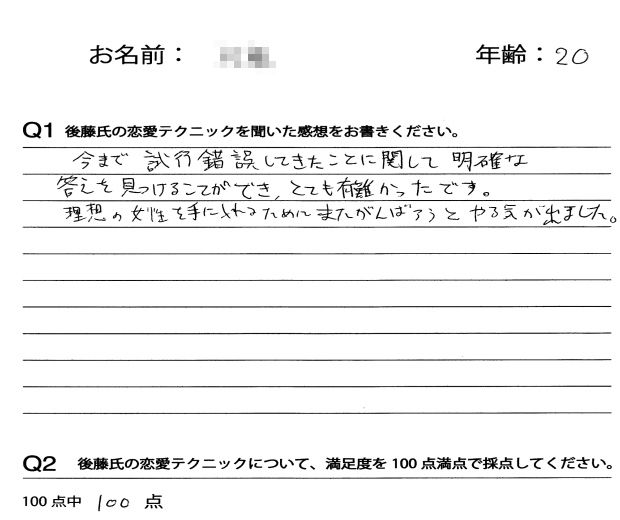 お名前： 年齢：20
Q1 後藤氏の恋愛テクニックを聞いた感想をお書きください。
今まで 試行錯誤してきたことに関して 明確な
答えを見つけることができ、とても有難かったです。
理想の女性を手に入れるためにまたがんばろうと やる気が出ました。
Q2 後藤氏の恋愛テクニックについて、満足度を100点満点で採点してください。
100点中 100 点